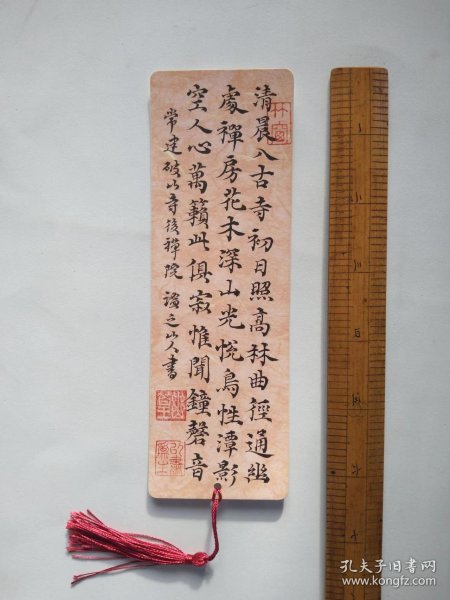 清晨入古寺初日照高林曲徑通幽
處禪房花木深山光悅鳥性潭影
空人心萬籟此俱寂惟聞鐘磬音
常建破山寺後禪院 之山人書
孔夫子旧书网
www.kongfz.com